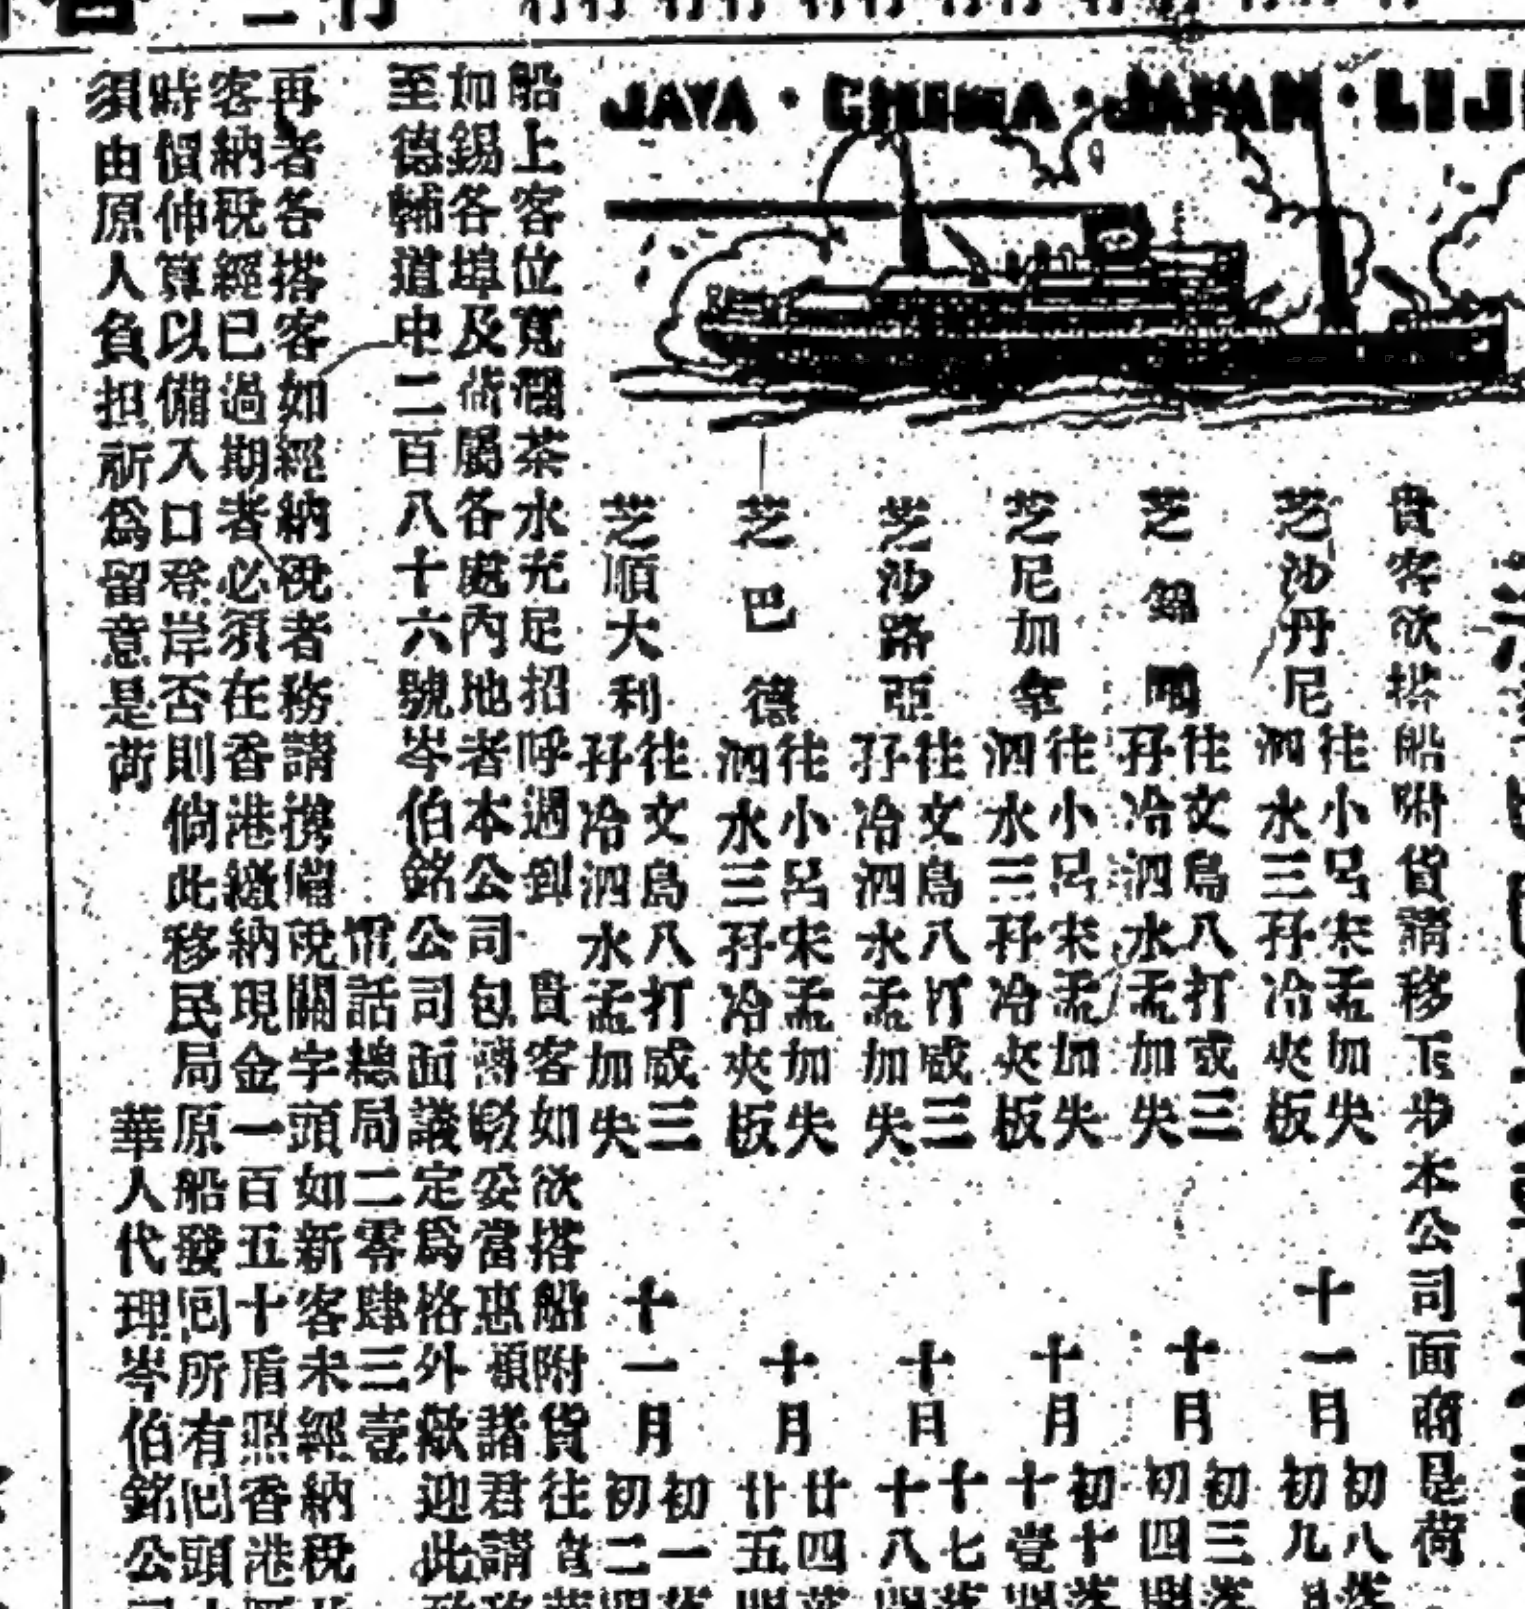 JAVA · CHINA · JAPAN · LIJ
貴客欲搭船附貨請移玉步本公司面商是荷
芝沙丹尼 往小呂宋孟加失 十一月 初八
泗水三孖冷夾板 初九
芝錦 往文島八打威三 十月 初三
孖冷泗水孟加失 初四
芝尼加拿 往小呂宋孟加失 十月 初十
泗水三孖冷夾板 十壹
芝沙路亞 往文島八打威三 十月 十七
孖冷泗水孟加失 十八
芝巴德 往小呂宋孟加失 十月 廿四
泗水三孖冷夾板 廿五
芝順大利 往文島八打威三 十一月 初一
孖冷泗水孟加失 初二
船上客位寬濶茶水充足招呼週到 貴客如欲搭船附貨往
加錫各埠及荷屬各處內地者本公司包妥當惠顧諸君請
至德輔道中二百八十六號岑伯銘公司面議定為格外歡迎此
電話總局二零肆三壹
再者各搭客如經納稅者務請携備稅關字頭如新客未經納稅
客納稅經已過期者必須在香港繳納現金一百五十盾照香港
時價伸算以備入口登岸否則倘此移民局原船發回所有回頭
須由原人負担祈為留意是荷
華人代理岑伯銘公